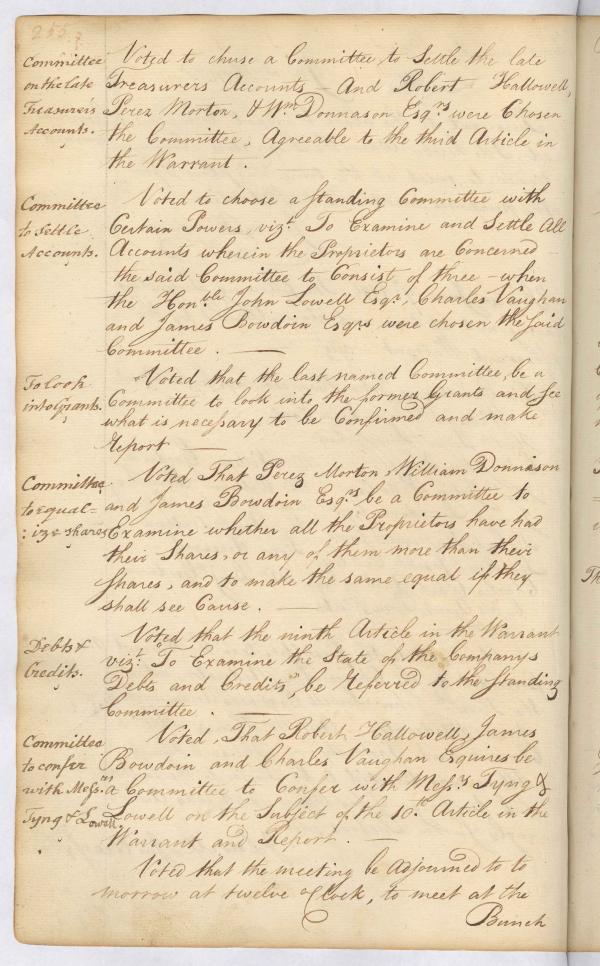 255
Committee
on the late
Treasurers
Accounts.
Voted to chuse a Committee, to Settle the late
Treasurers Accounts – And Robert Hallowell,
Perez Morton, & Wm Donnason Esqrs were Chosen
the Committee, Agreeable to the third Article in
the Warrant.
Committee
to Settle
Accounts.
Voted to choose a standing Committee with
Certain Powers, vizt. To Examine and Settle All
Accounts wherein the Proprietors are Concerned –
the said Committee to Consist of three – when
the Honble John Lowell Esqr, Charles Vaughan
and James Bowdoin Esqrs were chosen the said
Committee. —
To look
into Grants.
Voted that the last named Committee, be a
Committee to look into the former Grants and see
what is necessary to be Confirmed and make
Report —
Committee
to equal=
:ize shares
Voted That Perez Morton, William Donnason
and James Bowdoin Esqrs be a Committee to
Examine whether all the Proprietors have had
their Shares, or any of them more than their
shares, and to make the same equal if they
shall see Cause. —
Debts &
Credits.
Voted that the ninth Article in the Warrant
vizt: "To Examine the State of the Companys
Debts and Credits", be Referred to the standing
Committee. —
Committee
to confer
with Messrs
Tyng & Lowell
Voted, That Robert Hallowell, James
Bowdoin and Charles Vaughan Equires be
a Committee to Confer with Messrs Tyng &
Lowell on the Subject of the 10th Article in the
Warrant and Report. —
Voted that the meeting be adjourned to to
morrow at twelve oClock, to meet at the
Bunch